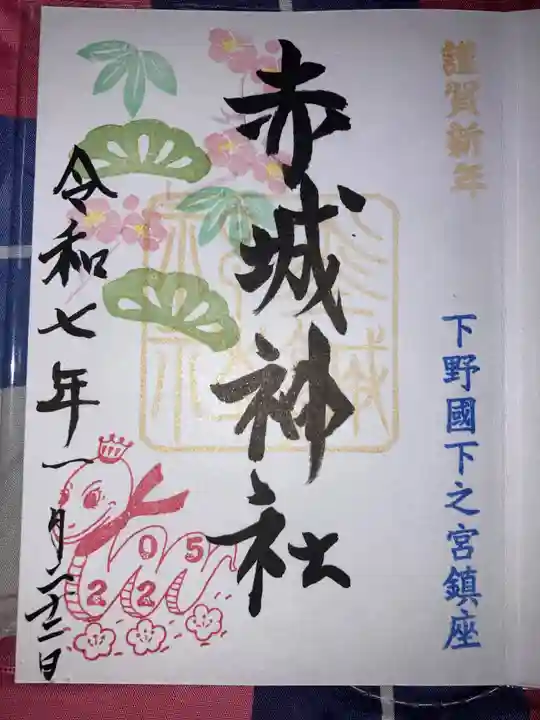 謹賀新年
下野國下之宮鎮座
赤城神社
令和七年一月二十二日
2025